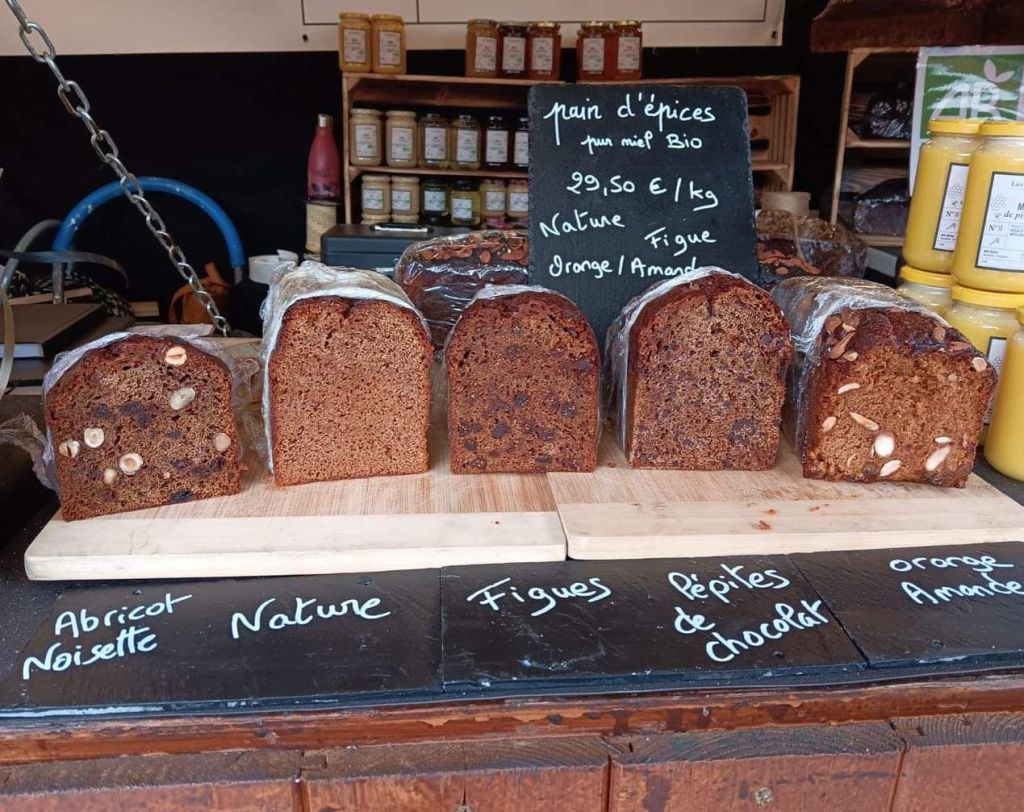 pain d'épices
pur miel Bio
29,50 € / kg
Nature
Figue
Orange / Amand
AB
Abricot
Noisette
Nature
Figues
Pépites
de
chocolat
orange
Amande